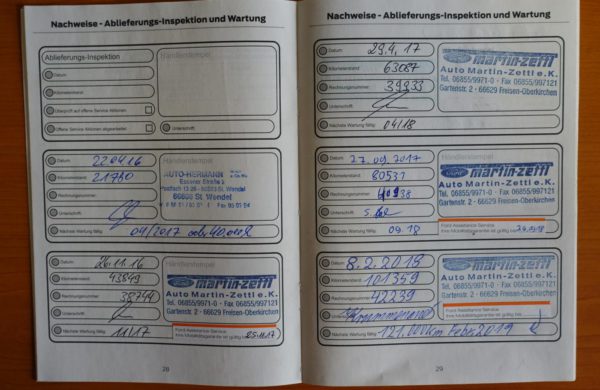 Nachweise - Ablieferungs-Inspektion und Wartung
Ablieferungs-Inspektion
Händlerstempel
Datum
Kilometerstand
Überprüft auf offene Service Aktionen
Offene Service Aktionen abgearbeitet
Unterschrift
Datum 22.04.16
Händlerstempel
Kilometerstand 21750
AUTO-HERMANN
Essener Straße
66606 St. Wendel
Rechnungsnummer
Unterschrift
Nächste Wartung fällig 04/2017 oder
Datum 26.11.16
Händlerstempel
Kilometerstand 43849
martin-zettl
Rechnungsnummer 38744
Auto Martin-Zettl e.K.
Tel. 06855/9971-0 · Fax 06855/997121
Gartenstr. 2 · 66629 Freisen-Oberkirchen
Unterschrift
Nächste Wartung fällig 11/17
Ford Assistance Service
Ihre Mobilitätsgarantie ist gültig bis 25.11.17
28
Nachweise - Ablieferungs-Inspektion und Wartung
Datum 29.4.17
Kilometerstand 63087
martin-zettl
Rechnungsnummer 39933
Auto Martin-Zettl e.K.
Tel. 06855/9971-0 · Fax 06855/997121
Gartenstr. 2 · 66629 Freisen-Oberkirchen
Unterschrift
Nächste Wartung fällig 04/18
Datum 27.09.2017
Händlerstempel
Kilometerstand 80531
martin-zettl
Rechnungsnummer 40938
Auto Martin-Zettl e.K.
Tel. 06855/9971-0 · Fax 06855/997121
Gartenstr. 2 · 66629 Freisen-Oberkirchen
Unterschrift
Nächste Wartung fällig 09.18
Ford Assistance Service
Ihre Mobilitätsgarantie ist gültig bis
Datum 8.2.2018
Händlerstempel
Kilometerstand 101359
martin-zettl
Rechnungsnummer 42239
Auto Martin-Zettl e.K.
Tel. 06855/9971-0 · Fax 06855/997121
Gartenstr. 2 · 66629 Freisen-Oberkirchen
Ford Assistance Service
Ihre Mobilitätsgarantie ist gültig bis
Nächste Wartung fällig 121.000km Febr. 2019
29